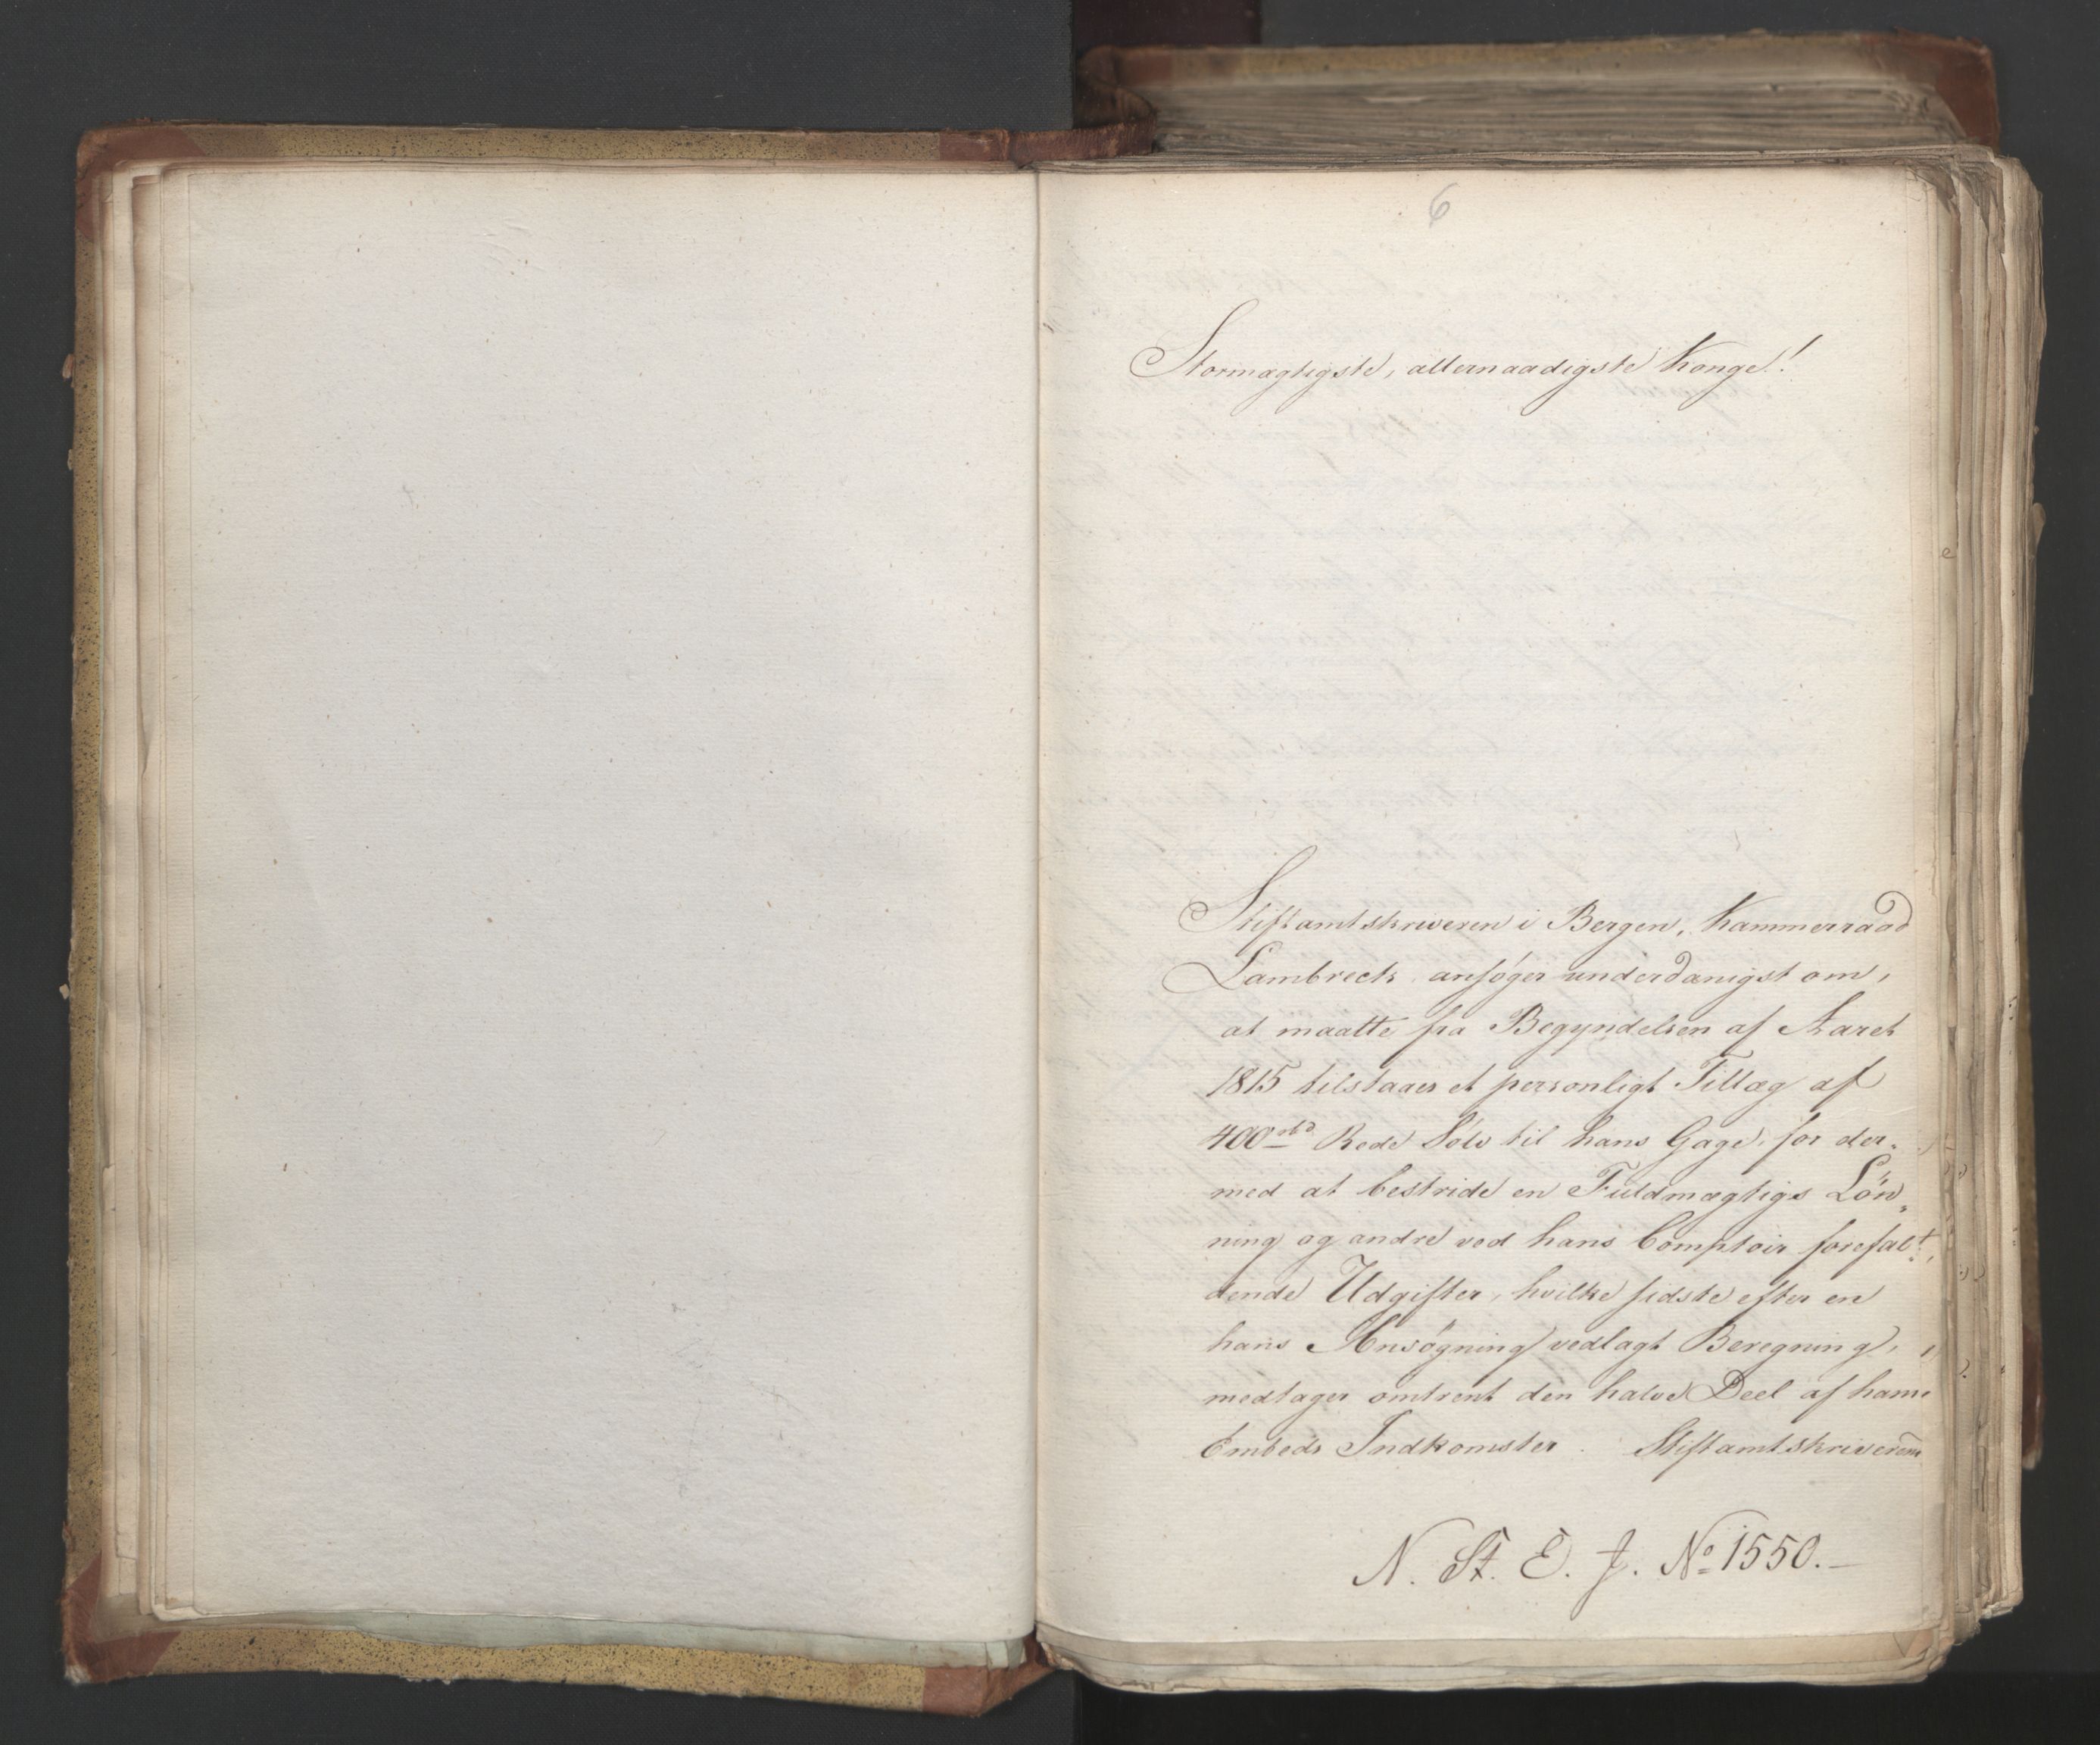 6
Stormægtigste, allernaadigste Konge!
Stiftamtskriveren i Bergen, Kammerraad
Lambrects ansøger underdanigst om,
at maatte fra Begyndelsen af Aaret
1815 tilstaaes et personligt Tillæg af
400 rbd. Rede Sølv til hans Gage, for der-
med at bestride en Fuldmægtigs Løn-
ning og andre ved hans Comptoir forefal-
dende Udgifter, hvilke sidste efter en
hans Ansøgning vedlagt Beregning,
medtager omtrent den halve Deel af hans
Embeds Indkomster. Stiftamtskriverens
N. St. E. J. No 1550.